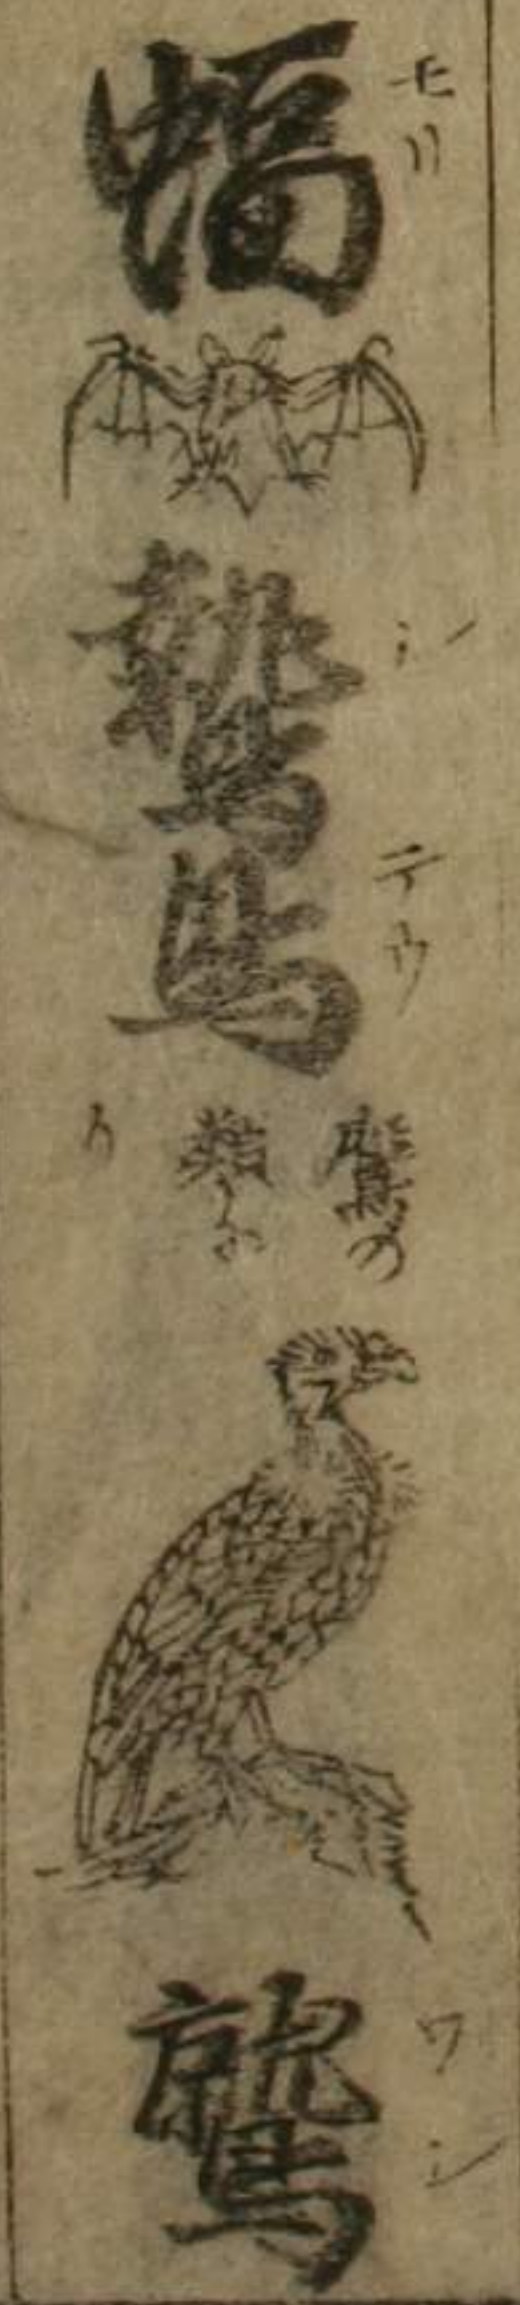 蝠
モリ
鷙鳥
シテウ
鷲の
類な
り
鷲
ワシ